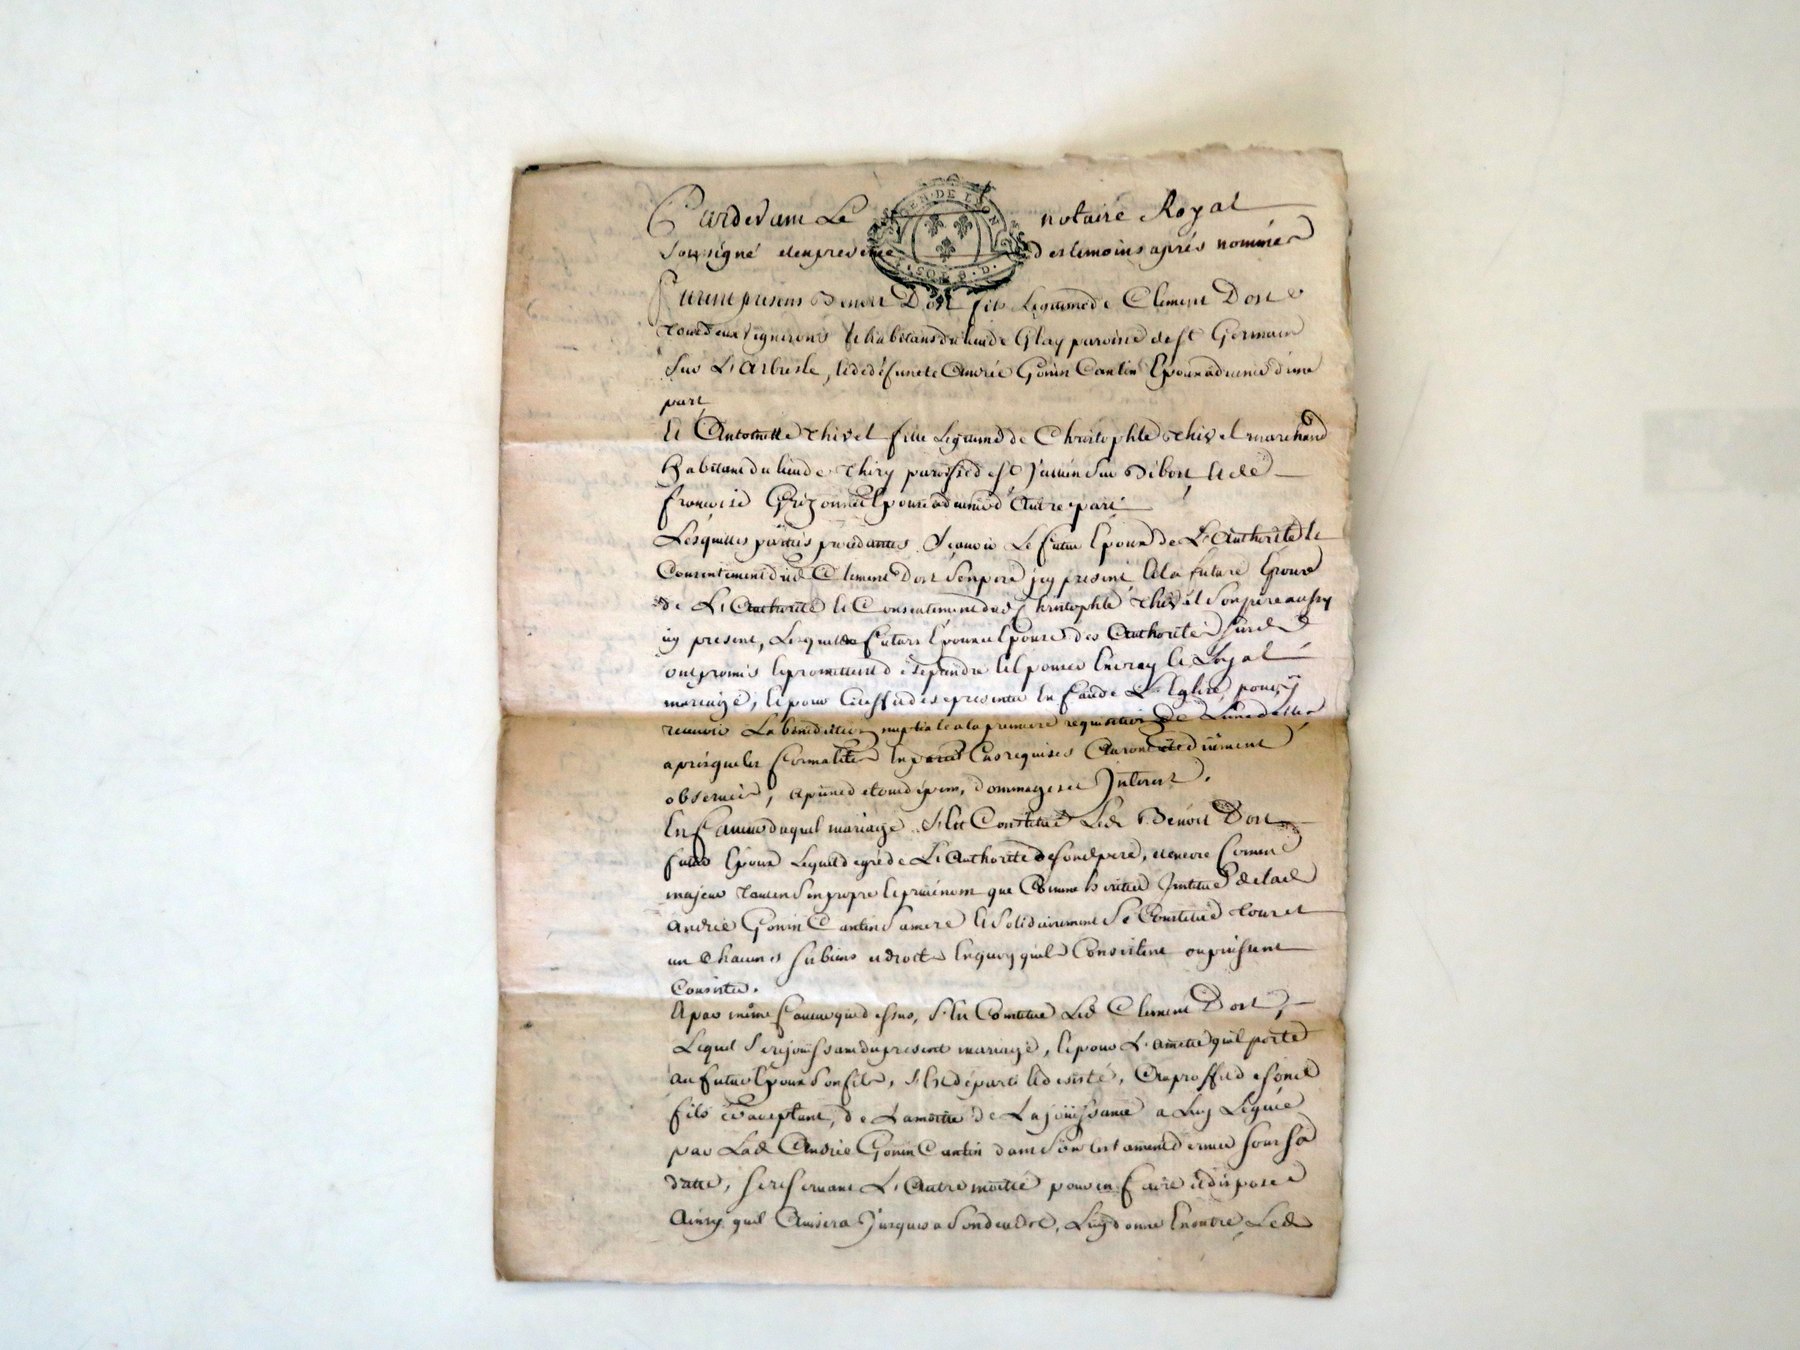 Pardevant Le notaire Royal
Soussigné et en presence des temoins après nommés
Furent presens Benoit Dost fils Legitime de Clement Dost
tous deux vignerons et habitans du lieu de Glay paroisse de St Germain
sur L'Arbresle, et de défuncte Andrée Gonin Cantin Epoux à venir d'une
part
Et Antoinette Thivel fille Legitime de Christophle Thivel marchand
habitant du lieu de Thiry paroisse de St Julien sur Bibost et de
françoise Grizonnet Epouse à venir d'Autre part
Lesquelles parties procédantes, Sçavoir Le futur Epoux de L'Authorité et
Consentement dud Clement Dost Son pere icy present, Et la future Epouse
de L'Authorité et Consentement dud Christophle Thivel Son pere aussy
icy present, Lesquels futurs Epoux et Epouse des Authorités susd
ont promis et promettent de se prendre et Epouser En vray et Loyal
mariage, et pour cet effet de se presenter En face de L'Eglise pour y
recevoir La bénédiction nuptiale a la premiere requisition de L'un d'Eux
apres que les formalités En pareil Cas requises Auront été düement
observées, a peine de tous dépens, dommages et Interest.
En faveur duquel mariage S'Est Constitué Led Benoit Dost
futur Epoux Lequel de gré de L'Authorité de sond pere, et encore Comme
majeur tant en Son propre et privé nom que Comme heritier Institué de lad
Andrée Gonin Cantin Sa mere et Solidairement Se Constitue tous et
un Chacuns ses biens et droits En quoy quils Consistent ou puissent
Consister.
Et par même faveur que dessus, S'Est Constitué Led Clement Dost,
Lequel Se rejouissant du present mariage, et pour L'amitié quil porte
au futur Epoux Son fils, S'Est départi et desisté, Au proffit de sond
fils acceptant, de La moitié de La joüissance a Luy Leguée
par Lad Andrée Gonin Cantin dans Son testament dernier sous Sa
datte, Se reservant L'Autre moitié pour en faire et disposer
Ainsy quil Avisera Jusques a Son deceds, Luy donne En outre Led